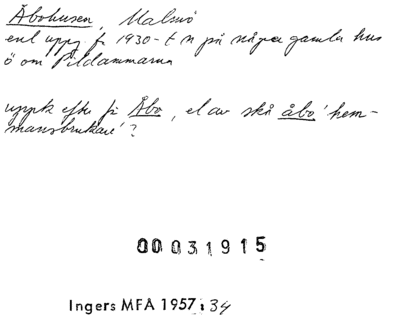 Åbohusen, Malmö
enl uppg fr 1930-t n på några gamla hus
ö om Pildammarna
uppk efter fr Åbo, el av skå åbo 'hem-
mansbrukare'?
00031915
Ingers MFA 1957 : 34